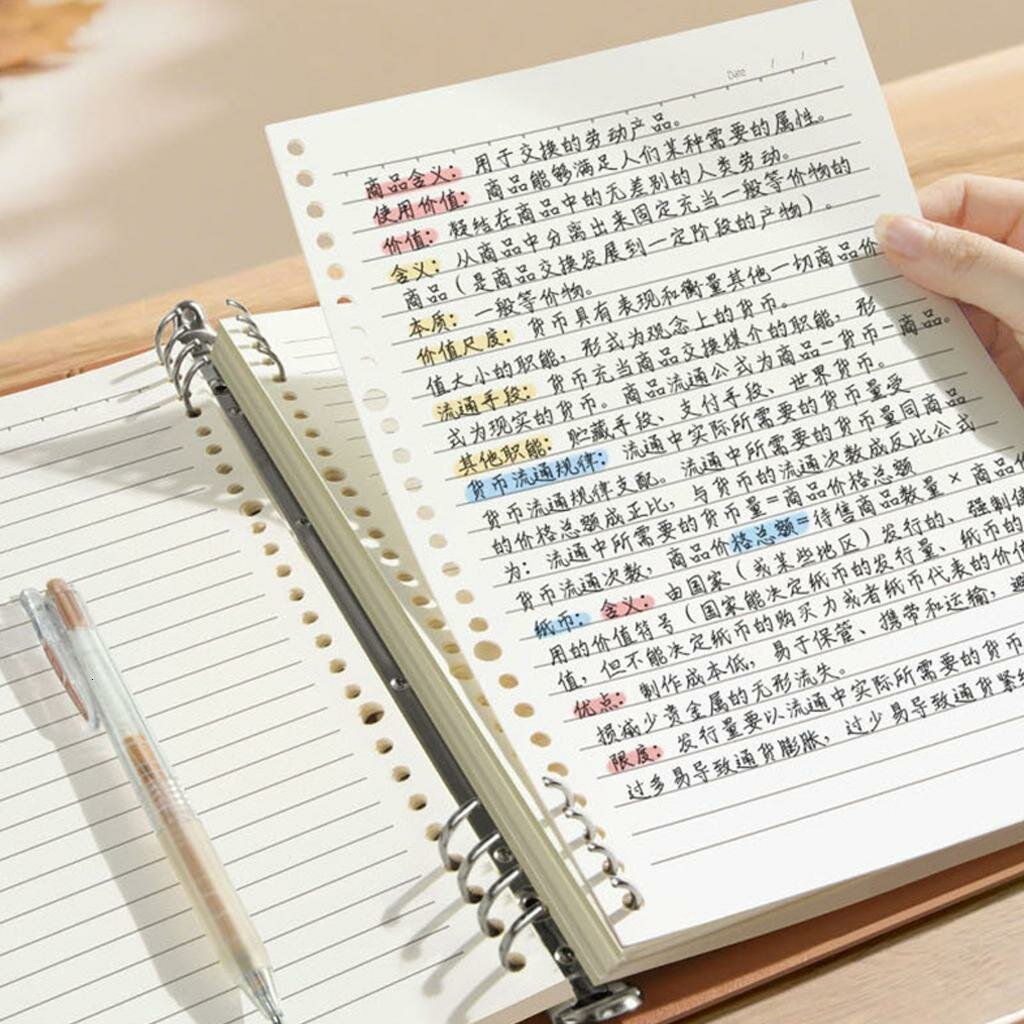 Date / /
商品含义：用于交换的劳动产品。
使用价值：商品能够满足人们某种需要的属性。
价值：凝结在商品中的无差别的人类劳动。
含义：从商品中分离出来固定充当一般等价物的
商品（是商品交换发展到一定阶段的产物）。
本质：一般等价物。
价值尺度：货币具有表现和衡量其他一切商品价
值大小的职能，形式为观念上的货币。
流通手段：货币充当商品交换媒介的职能，形
式为现实的货币。商品流通公式为商品-货币-商品。
其他职能：贮藏手段、支付手段、世界货币。
货币流通规律：流通中实际所需要的货币量受
货币流通规律支配。流通中所需要的货币量同商品
的价格总额成正比，与货币的流通次数成反比公式
为：流通中所需要的货币量=商品价格总额
货币流通次数，商品价格总额=待售商品数量×商品价
纸币：含义：由国家（或某些地区）发行的、强制使
用的价值符号（国家能决定纸币的发行量、纸币的
值，但不能决定纸币的购买力或者纸币代表的价值
优点：制作成本低，易于保管、携带和运输，避
损减少贵金属的无形流失。
限度：发行量要以流通中实际所需要的货币
过多易导致通货膨胀，过少易导致通货紧缩